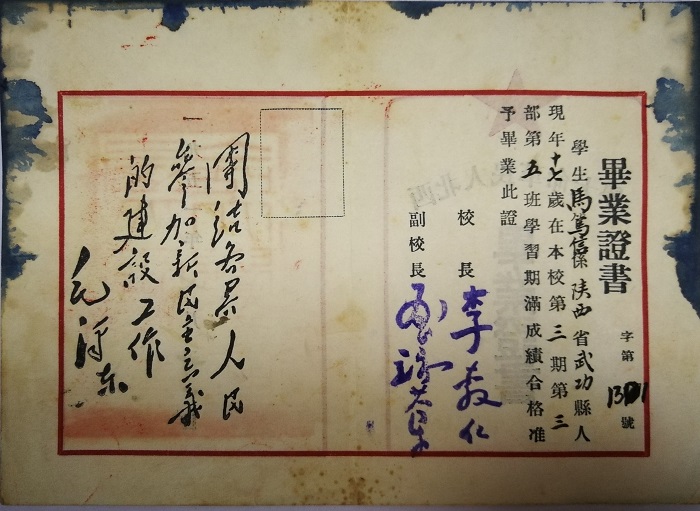 畢業證書
字第1301號
學生馬篤信係陝西省武功縣人
現年十七歲在本校第三期第三
部第五班學習期滿成績合格准
予畢業此證
校長 李敷仁
副校長
團結各界人民
參加新民主主義
的建設工作
毛澤東